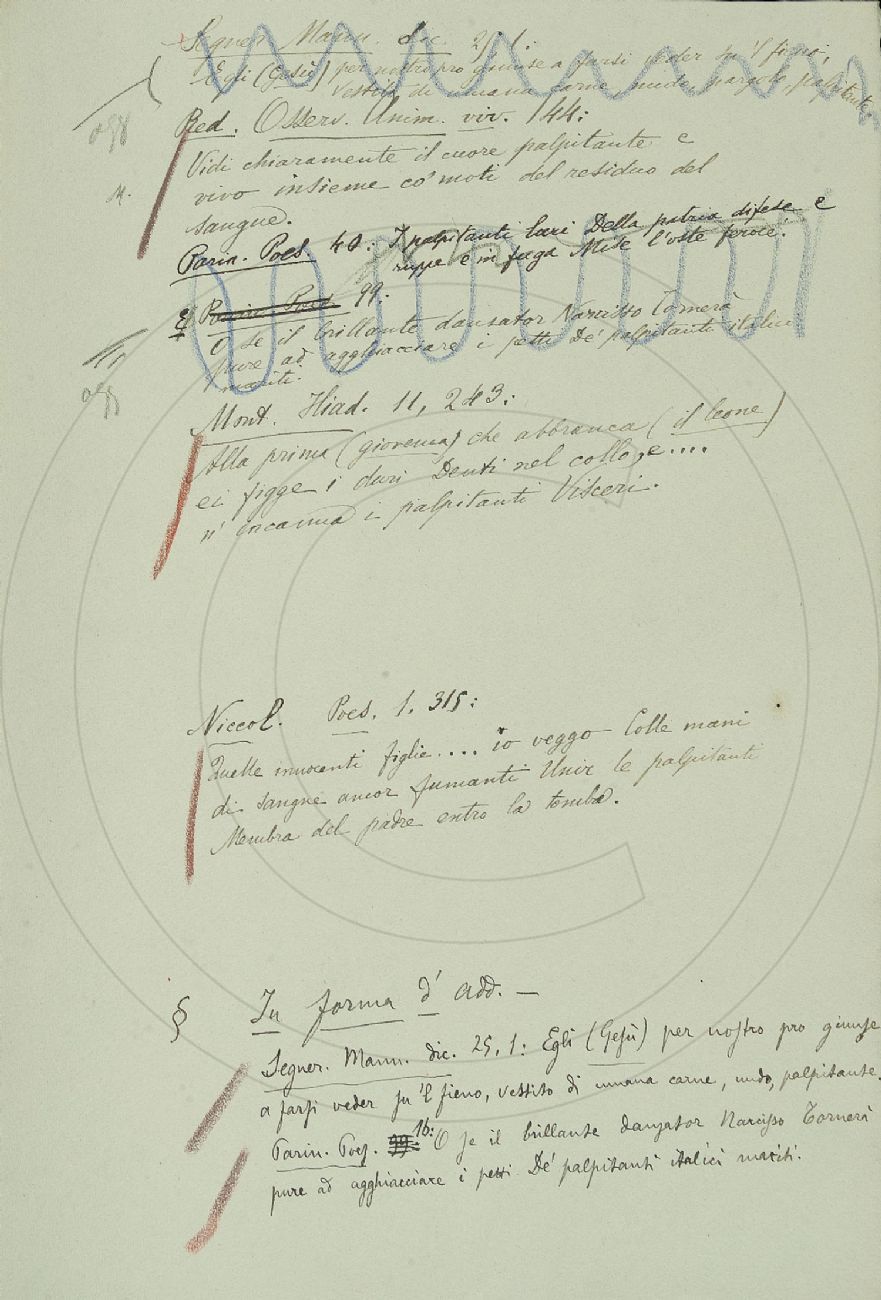 Segner. Mann. dic. 25, 1:
Egli (Gesù) per nostro pro giunse a farsi veder su 'l fieno,
vestito di umana carne, nudo, pargolo, palpitante.
Red. Osserv. Anim. viv. 144:
Vidi chiaramente il cuore palpitante e
vivo insieme co' moti del residuo del
sangue.
Parin. Poes. 40: I palpitanti lari Della patria difese e
ruppe e in fuga Mise l'oste feroce.
E Parin. Poes. 99:
O se il brillante danzator Narcisso Tornerà
pure ad agghiacciare i petti De' palpitanti italici
mariti.
Mont. Iliad. 11, 243:
Alla prima (giovenca) che abbranca (il leone)
ei figge i duri Denti nel collo, e....
n' incanna i palpitanti Visceri.
Niccol. Poes. 1, 315:
Quelle innocenti figlie.... io veggo Colle mani
di sangue ancor fumanti Unir le palpitanti
Membra del padre entro la tomba.
§ In forma d' add. —
Segner. Mann. dic. 25, 1: Egli (Gesù) per nostro pro giunse
a farsi veder su 'l fieno, vestito di umana carne, nudo, palpitante.
Parin. Poes. 99. 16: O se il brillante danzator Narcisso Tornerà
pure ad agghiacciare i petti De' palpitanti italici mariti.